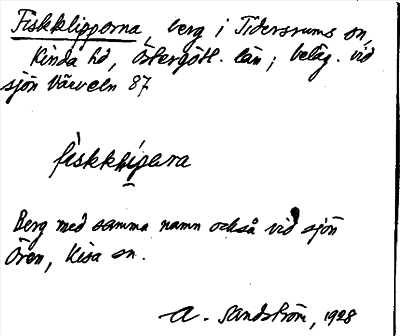 Fiskklipporna, berg i Tidersrums sn,
Kinda hd, Östergötl. län; beläg. vid
sjön Värveln 87
Berg med samma namn också vid sjön
Ören, Kisa sn.
A. Sandström, 1928